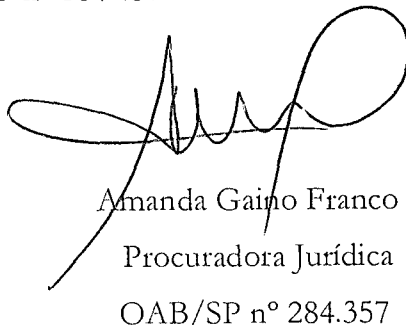 Amanda Gaino Franco
Procuradora Jurídica
OAB/SP nº 284.357